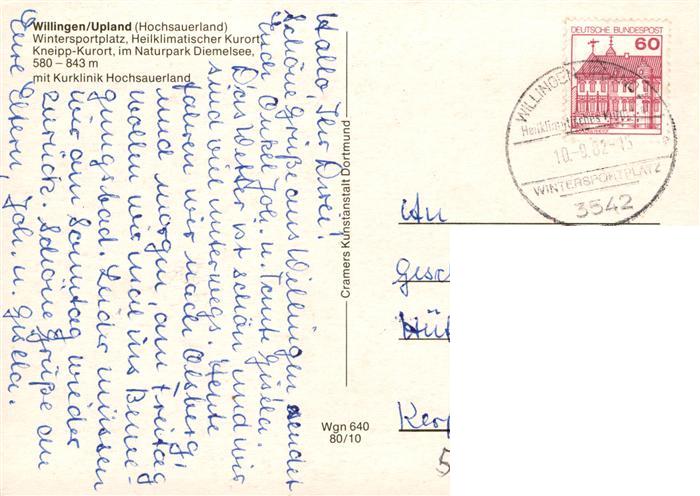 Willingen/Upland (Hochsauerland)
Wintersportplatz, Heilklimatischer Kurort
Kneipp-Kurort, im Naturpark Diemelsee,
580 – 843 m
mit Kurklinik Hochsauerland
Hallo, Ihr Drei!
Schöne Grüße aus Willingen sendet
Euch Onkel Joh. u. Tante Gisela.
Das Wetter ist schön und wir
sind viel unterwegs. Heute
fahren wir nach Olsberg,
und morgen, am Freitag
wollen wir mal ins
gungsbad. Leider müssen
wir am Sonntag wieder
zurück. Schöne Grüße an
Eure Eltern, Joh. u. Gisela.
Cramers Kunstanstalt Dortmund
Wgn 640
80/10
DEUTSCHE BUNDESPOST
60
WILLINGEN
Heilklimatisches
10.-9.82-15
WINTERSPORTPLATZ
3542
An
Gesch
Hüt
Kerp
5